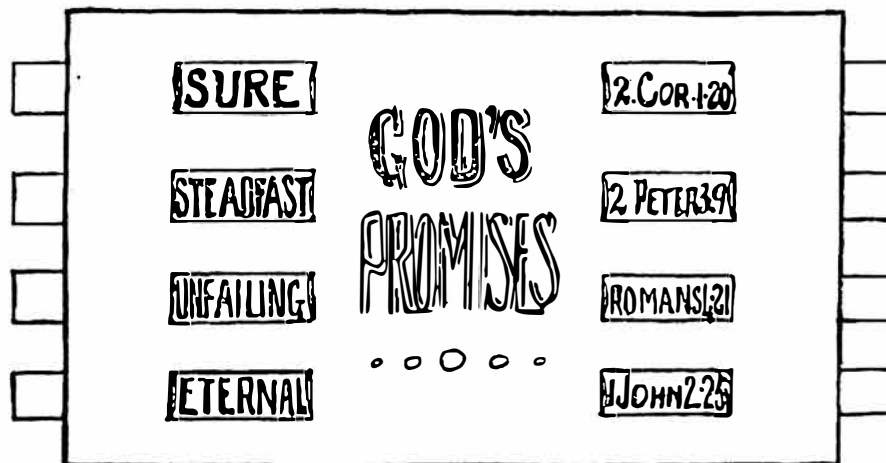 SURE
STEADFAST
UNFAILING
ETERNAL
GOD'S
PROMISES
2.COR.1:20
2 PETER3:9
ROMANS4:21
1JOHN2:25